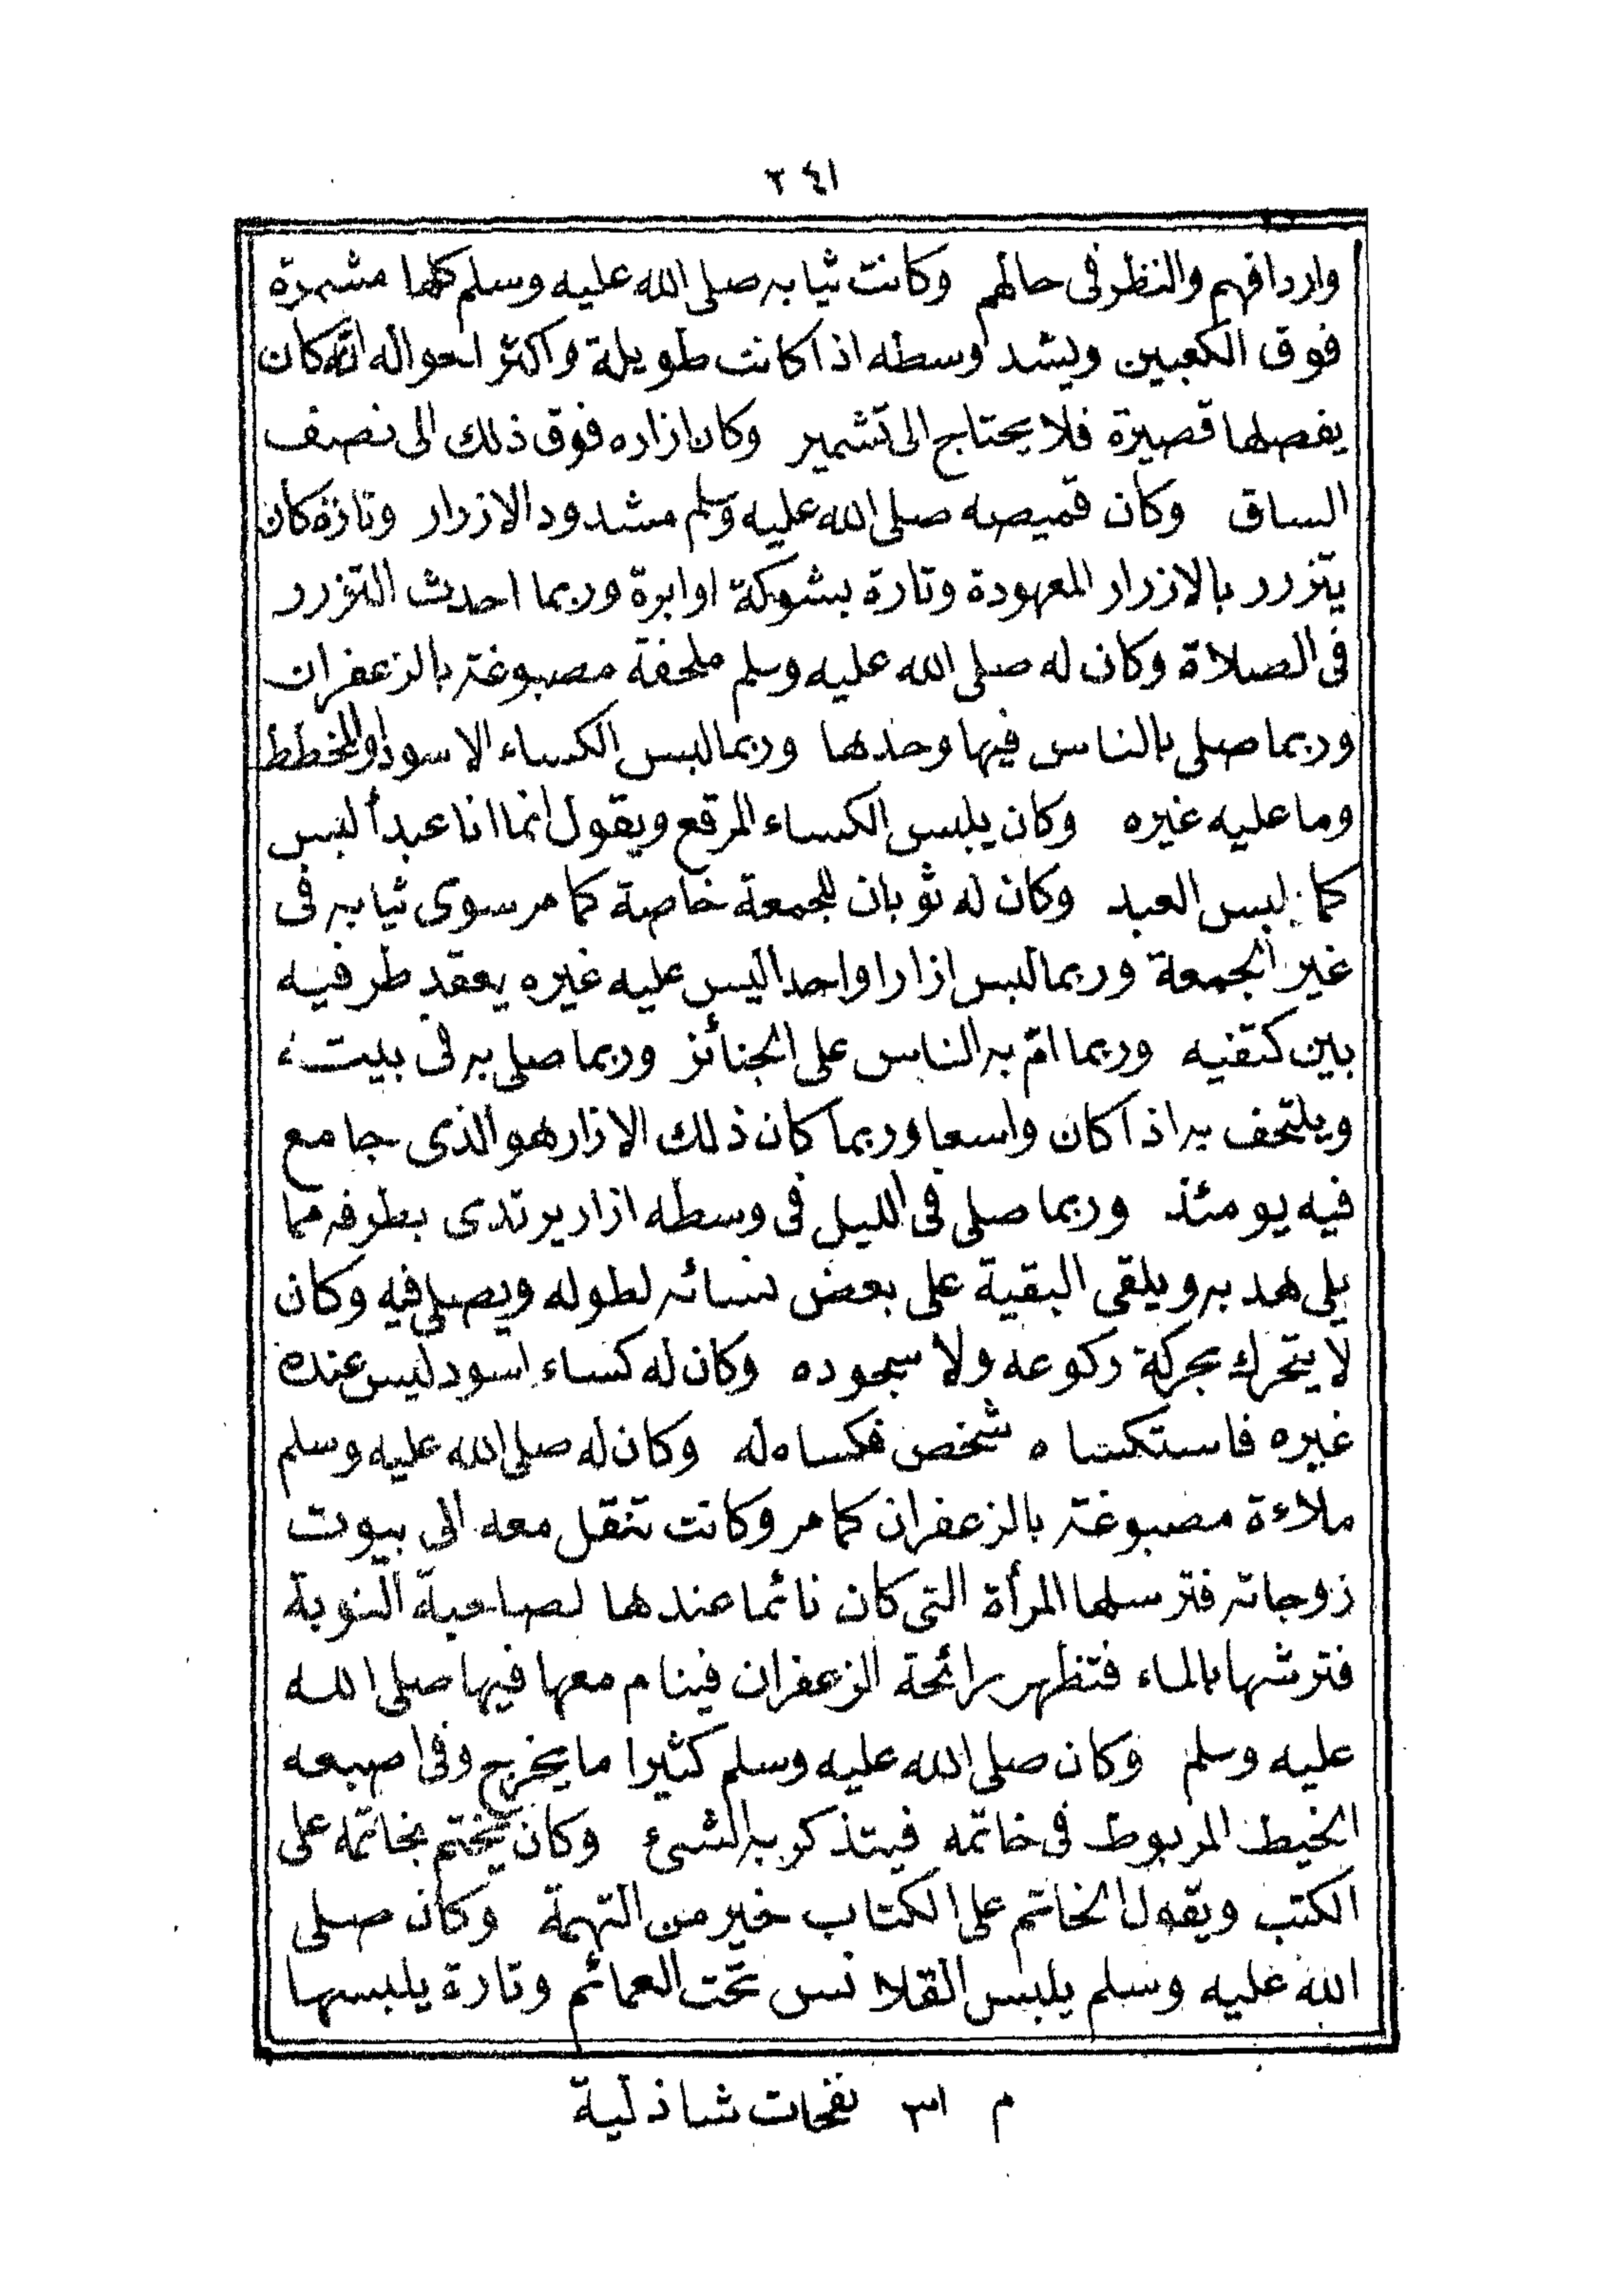 ٢٤١
واردافهم والنظر فى حالهم وكانت ثيابه صلى الله عليه وسلم كلها مشمرة
فوق الكعبين ويشد وسطه اذا كانت طويلة واكثر احواله انه كان
يفصلها قصيرة فلا يحتاج الى تشمير وكان ازاره فوق ذلك الى نصف
الساق وكان قميصه صلى الله عليه وسلم مشدود الازرار وتارة كان
يتزرر بالازرار المعهودة وتارة بشوكة او ابرة وربما احدث التزرر
فى الصلاة وكان له صلى الله عليه وسلم ملحفة مصبوغة بالزعفران
وربما صلى بالناس فيها وحدها وربما لبس الكساء الاسود او المخطط
وما عليه غيره وكان يلبس الكساء المرقع ويقول انما انا عبد ألبس
كما يلبس العبد وكان له ثوبان للجمعة خاصة كما مر سوى ثيابه فى
غير الجمعة وربما لبس ازارا واحدا ليس عليه غيره يعقد طرفيه
بين كتفيه وربما امّ به الناس على الجنائز وربما صلى به فى بيته
ويلتحف به اذا كان واسعا وربما كان ذلك الازار هو الذى جامع
فيه يومئذ وربما صلى فى الليل فى وسطه ازار يرتدى بطرفه مما
يلى هدبه ويلقى البقية على بعض نسائه لطوله ويصلى فيه وكان
لا يتحرك بحركة ركوعه ولا سجوده وكان له كساء اسود ليس عنده
غيره فاستكساه شخص فكساه له وكان له صلى الله عليه وسلم
ملاءة مصبوغة بالزعفران كما مر وكانت تنقل معه الى بيوت
زوجاته فترسلها المرأة التى كان نائما عندها لصاحبة النوبة
فترشها بالماء فتظهر رائحة الزعفران فينام معها فيها صلى الله
عليه وسلم وكان صلى الله عليه وسلم كثيرا ما يخرج وفى اصبعه
الخيط المربوط فى خاتمه فيتذكر به الشىء وكان يختم بخاتمه على
الكتب ويقول الخاتم على الكتاب خير من التهمة وكان صلى
الله عليه وسلم يلبس القلانس تحت العمائم وتارة يلبسها
م ٣١ نفحات شاذلية